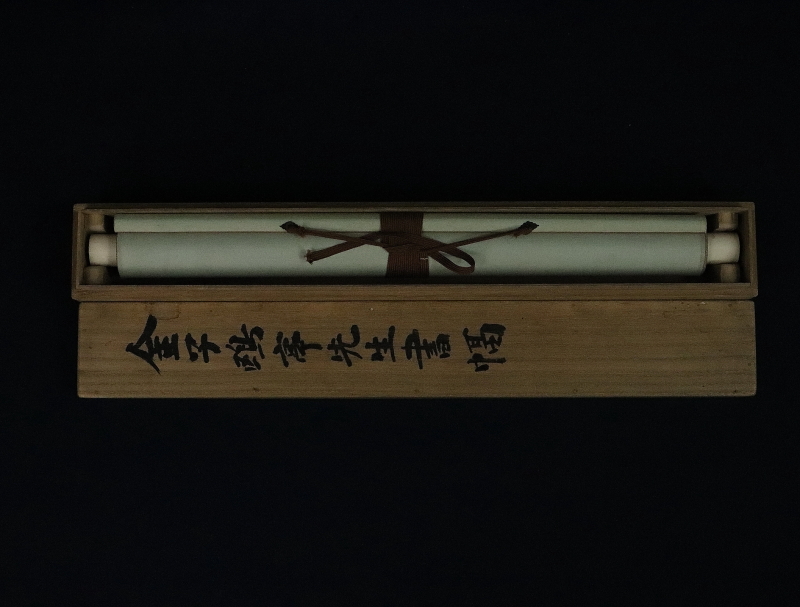 金子鷗亭先生書幅